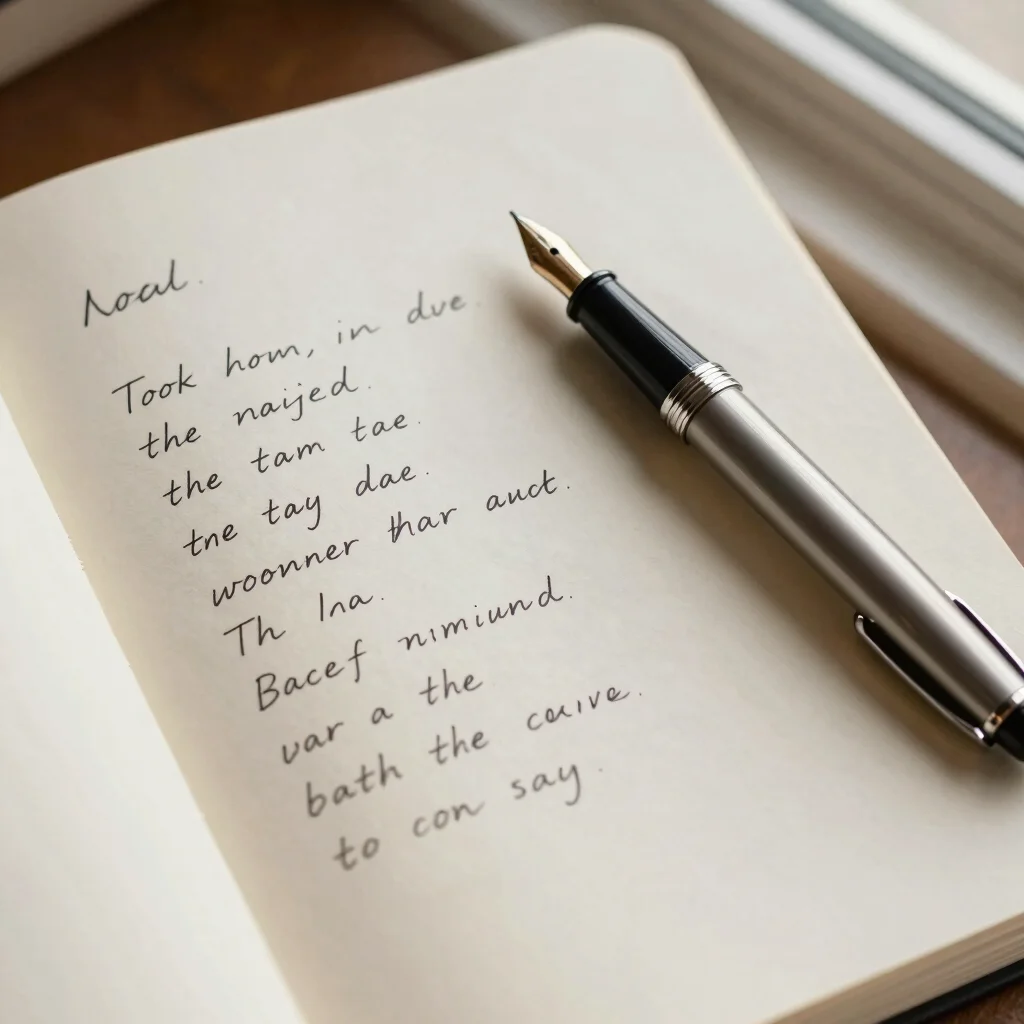 Noal.
Took hom, in dve.
the naijed.
the tam tae.
tne tay dae.
woonner thar auct.
Th Ina.
Bacef nimiund.
var a the
bath the caive.
to con say.